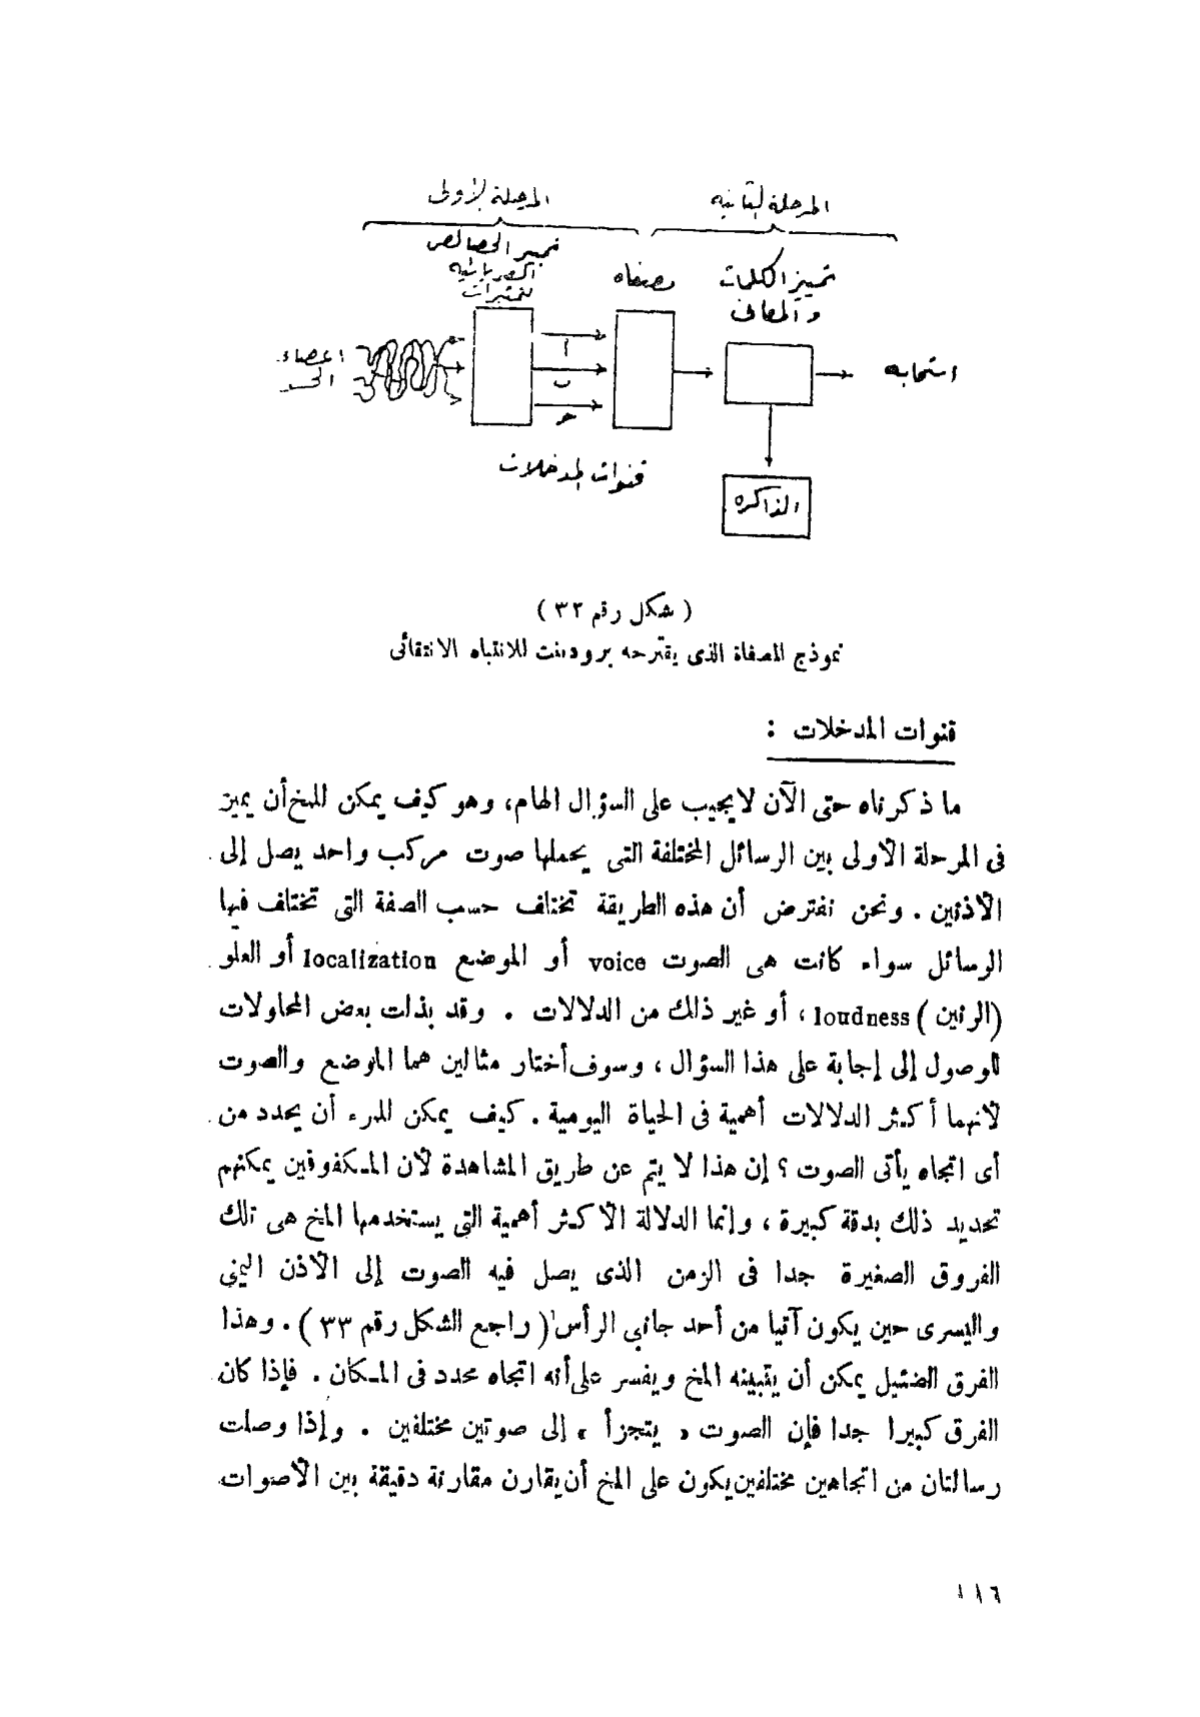 المرحلة الأولى
المرحلة الثانيه
تمييز الخصائص
الفيزيائيه
للمثيرات
مصفاه
تمييز الكلمات
والمعانى
أعضاء
الحس
ا
ب
ح
استجابه
قنوات المدخلات
الذاكره
( شكل رقم ٣٢ )
نموذج المصفاة الذى يقترحه برودبنت للانتباه الانتقائى
قنوات المدخلات :
ما ذكرناه حتى الآن لايجيب على السؤال الهام، وهو كيف يمكن للمخ أن يميز
فى المرحلة الأولى بين الرسائل المختلفة التى يحملها صوت مركب واحد يصل إلى
الأذنين . ونحن نفترض أن هذه الطريقة تختلف حسب الصفة التى تختلف فيها
الرسائل سواء كانت هى الصوت voice أو الموضع localization أو العلو
(الرنين ) loudness ، أو غير ذلك من الدلالات . وقد بذلت بعض المحاولات
للوصول إلى إجابة على هذا السؤال ، وسوف أختار مثالين هما الموضع والصوت
لأنهما أكثر الدلالات أهمية فى الحياة اليومية . كيف يمكن للمرء أن يحدد من
أى اتجاه يأتى الصوت ؟ إن هذا لا يتم عن طريق المشاهدة لأن المكفوفين يمكنهم
تحديد ذلك بدقة كبيرة ، وإنما الدلالة الأكثر أهمية التى يستخدمها المخ هى تلك
الفروق الصغيرة جدا فى الزمن الذى يصل فيه الصوت إلى الأذن اليمنى
واليسرى حين يكون آتيا من أحد جانبى الرأس ( راجع الشكل رقم ٣٣ ) . وهذا
الفرق الضئيل يمكن أن يتبينه المخ ويفسر على أنه اتجاه محدد فى المكان . فإذا كان
الفرق كبيرا جدا فإن الصوت « يتجزأ » إلى صوتين مختلفين . وإذا وصلت
رسالتان من اتجاهين مختلفين يكون على المخ أن يقارن مقارنة دقيقة بين الأصوات
١١٦